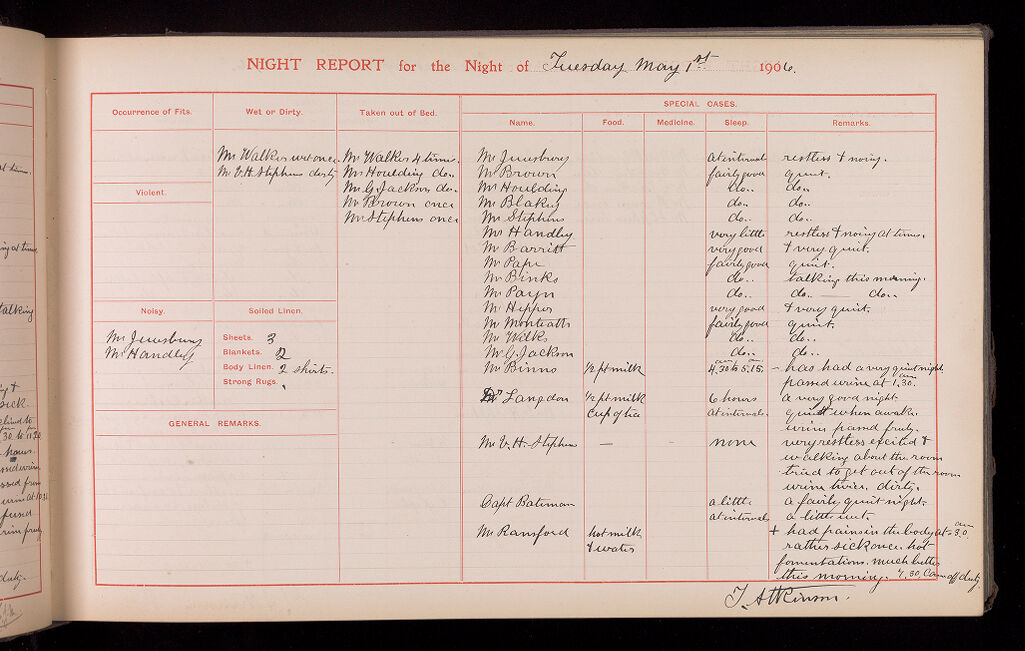 NIGHT REPORT for the Night of Tuesday May 1st 1906.
Occurrence of Fits.
Wet or Dirty.
Taken out of Bed.
SPECIAL CASES.
Name. Food. Medicine. Sleep. Remarks.
Mr Walker wet once.
Mr V. H. Stephens dirty
Mr Walker 4 times.
Mr Houlding do..
Mr G. Jackson do..
Mr Brown once
Mr Stephens once
Violent.
Noisy.
Mr Jewsbury
Mr Handley
Soiled Linen.
Sheets. 3
Blankets. 2
Body Linen. 2 shirts.
Strong Rugs.
GENERAL REMARKS.
Mr Jewsbury at interval restless & noisy.
Mr Brown fairly good quiet.
Mr Houlding do.. do..
Mr Blakey do.. do..
Mr Stephens do.. do..
Mr Handley very little restless & noisy at times.
Mr Barritt very good & very quiet.
Mr Pape fairly good quiet.
Mr Binks do.. talking this morning.
Mr Payn do.. do.. — do..
Mr Hipper very good & very quiet.
Mr Monteath fairly good quiet.
Mr Wilks do.. do..
Mr G. Jackson do.. do..
Mr Binns ½ pt milk 4.30 am to 5.15 am – has had a very quiet night
passed urine at 1.30 am.
Dr Langdon ½ pt milk 6 hours a very good night.
cup of tea at intervals. quiet when awake.
urine passed freely.
Mr V. H. Stephens — - none very restless excited &
walking about the room
tried to get out of the room
urine twice. dirty.
Capt Bateman a little a fairly quiet night.
at intervals a little wet.
Mr Ransford hot milk + had pains in the body at 3.0 am
& water rather sick once. hot
fomentations. much better
this morning. 7.30. Came off duty
T. Atkinson.
at times.
talking